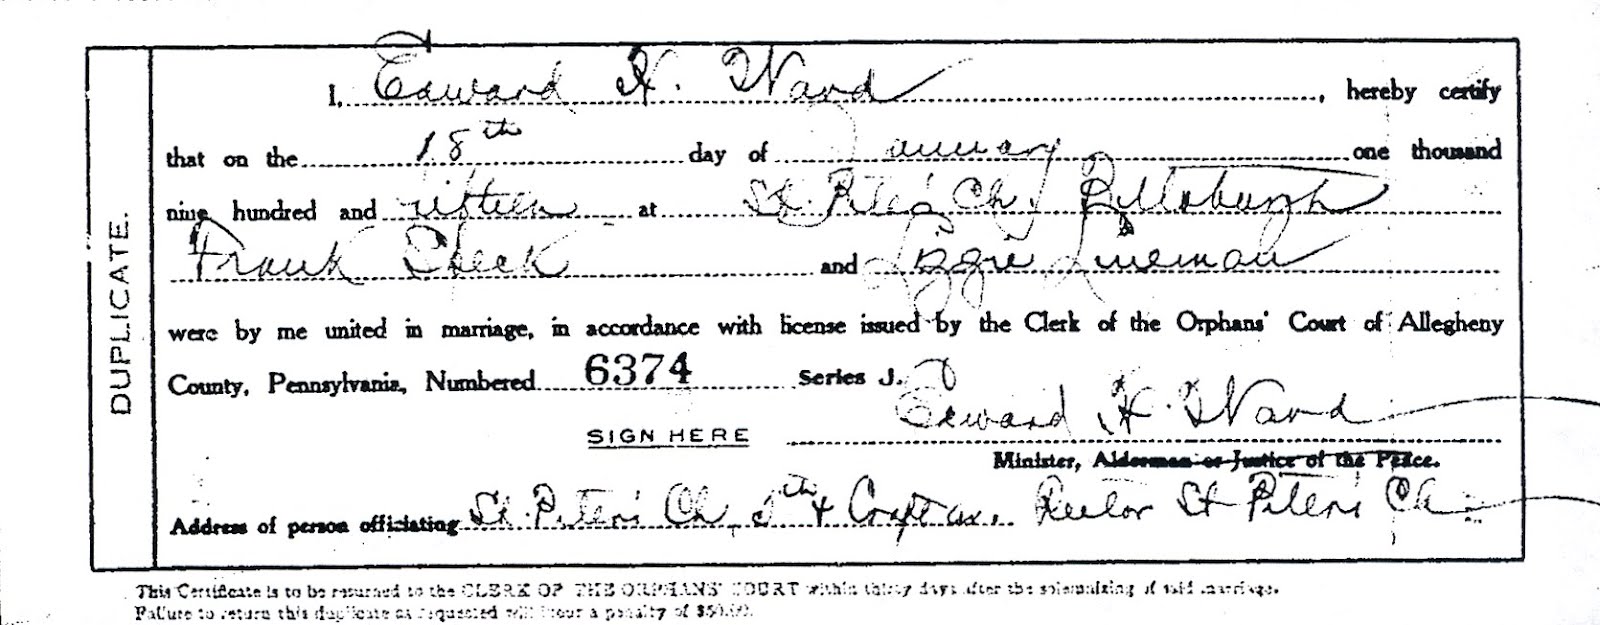 DUPLICATE.
I, Edward H. Ward, hereby certify
that on the 18th day of January one thousand
nine hundred and fifteen at St. Peter's Ch. Pittsburgh
Frank Sheck and Lizzie Lineman
were by me united in marriage, in accordance with license issued by the Clerk of the Orphans' Court of Allegheny
County, Pennsylvania, Numbered 6374 Series J.
Edward H. Ward
SIGN HERE
Minister, Alderman or Justice of the Peace.
Address of person officiating St. Peter's Ch. 5th & Craft av. Rector St Peter's Ch
This Certificate is to be returned to the CLERK OF THE ORPHANS' COURT within thirty days after the solemnizing of said marriage.
Failure to return this duplicate as requested will incur a penalty of $50.00.